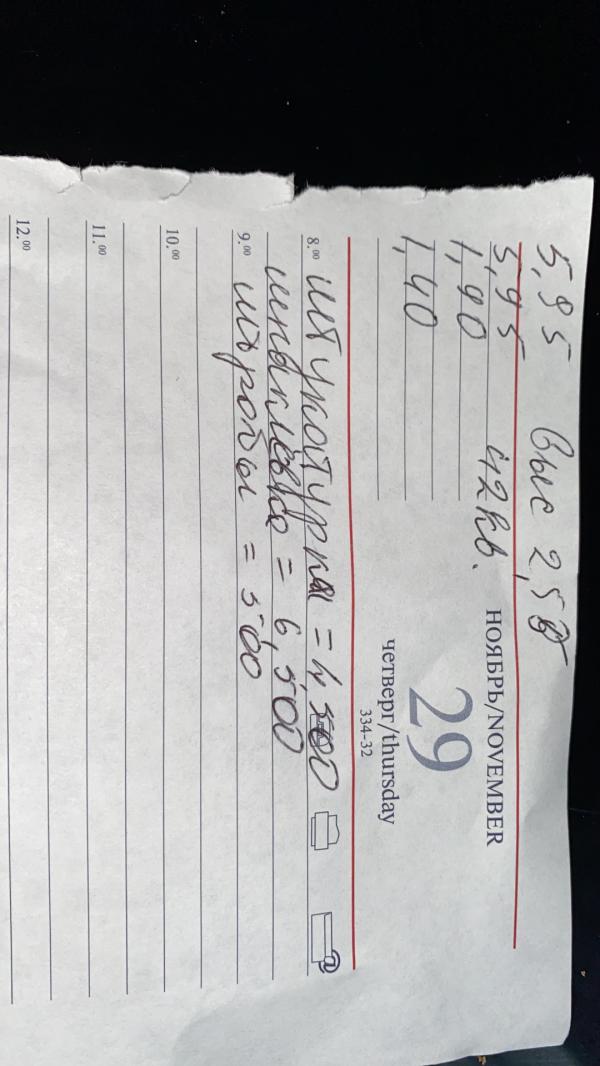 5,95 выс 2,50
5,95 42кв.
1,90
1,40
НОЯБРЬ/NOVEMBER
29
четверг/thursday
334-32
8.00 штукотурка = 4,500
шпаклёвка = 6,500
9.00 = 500
10.00
11.00
12.00